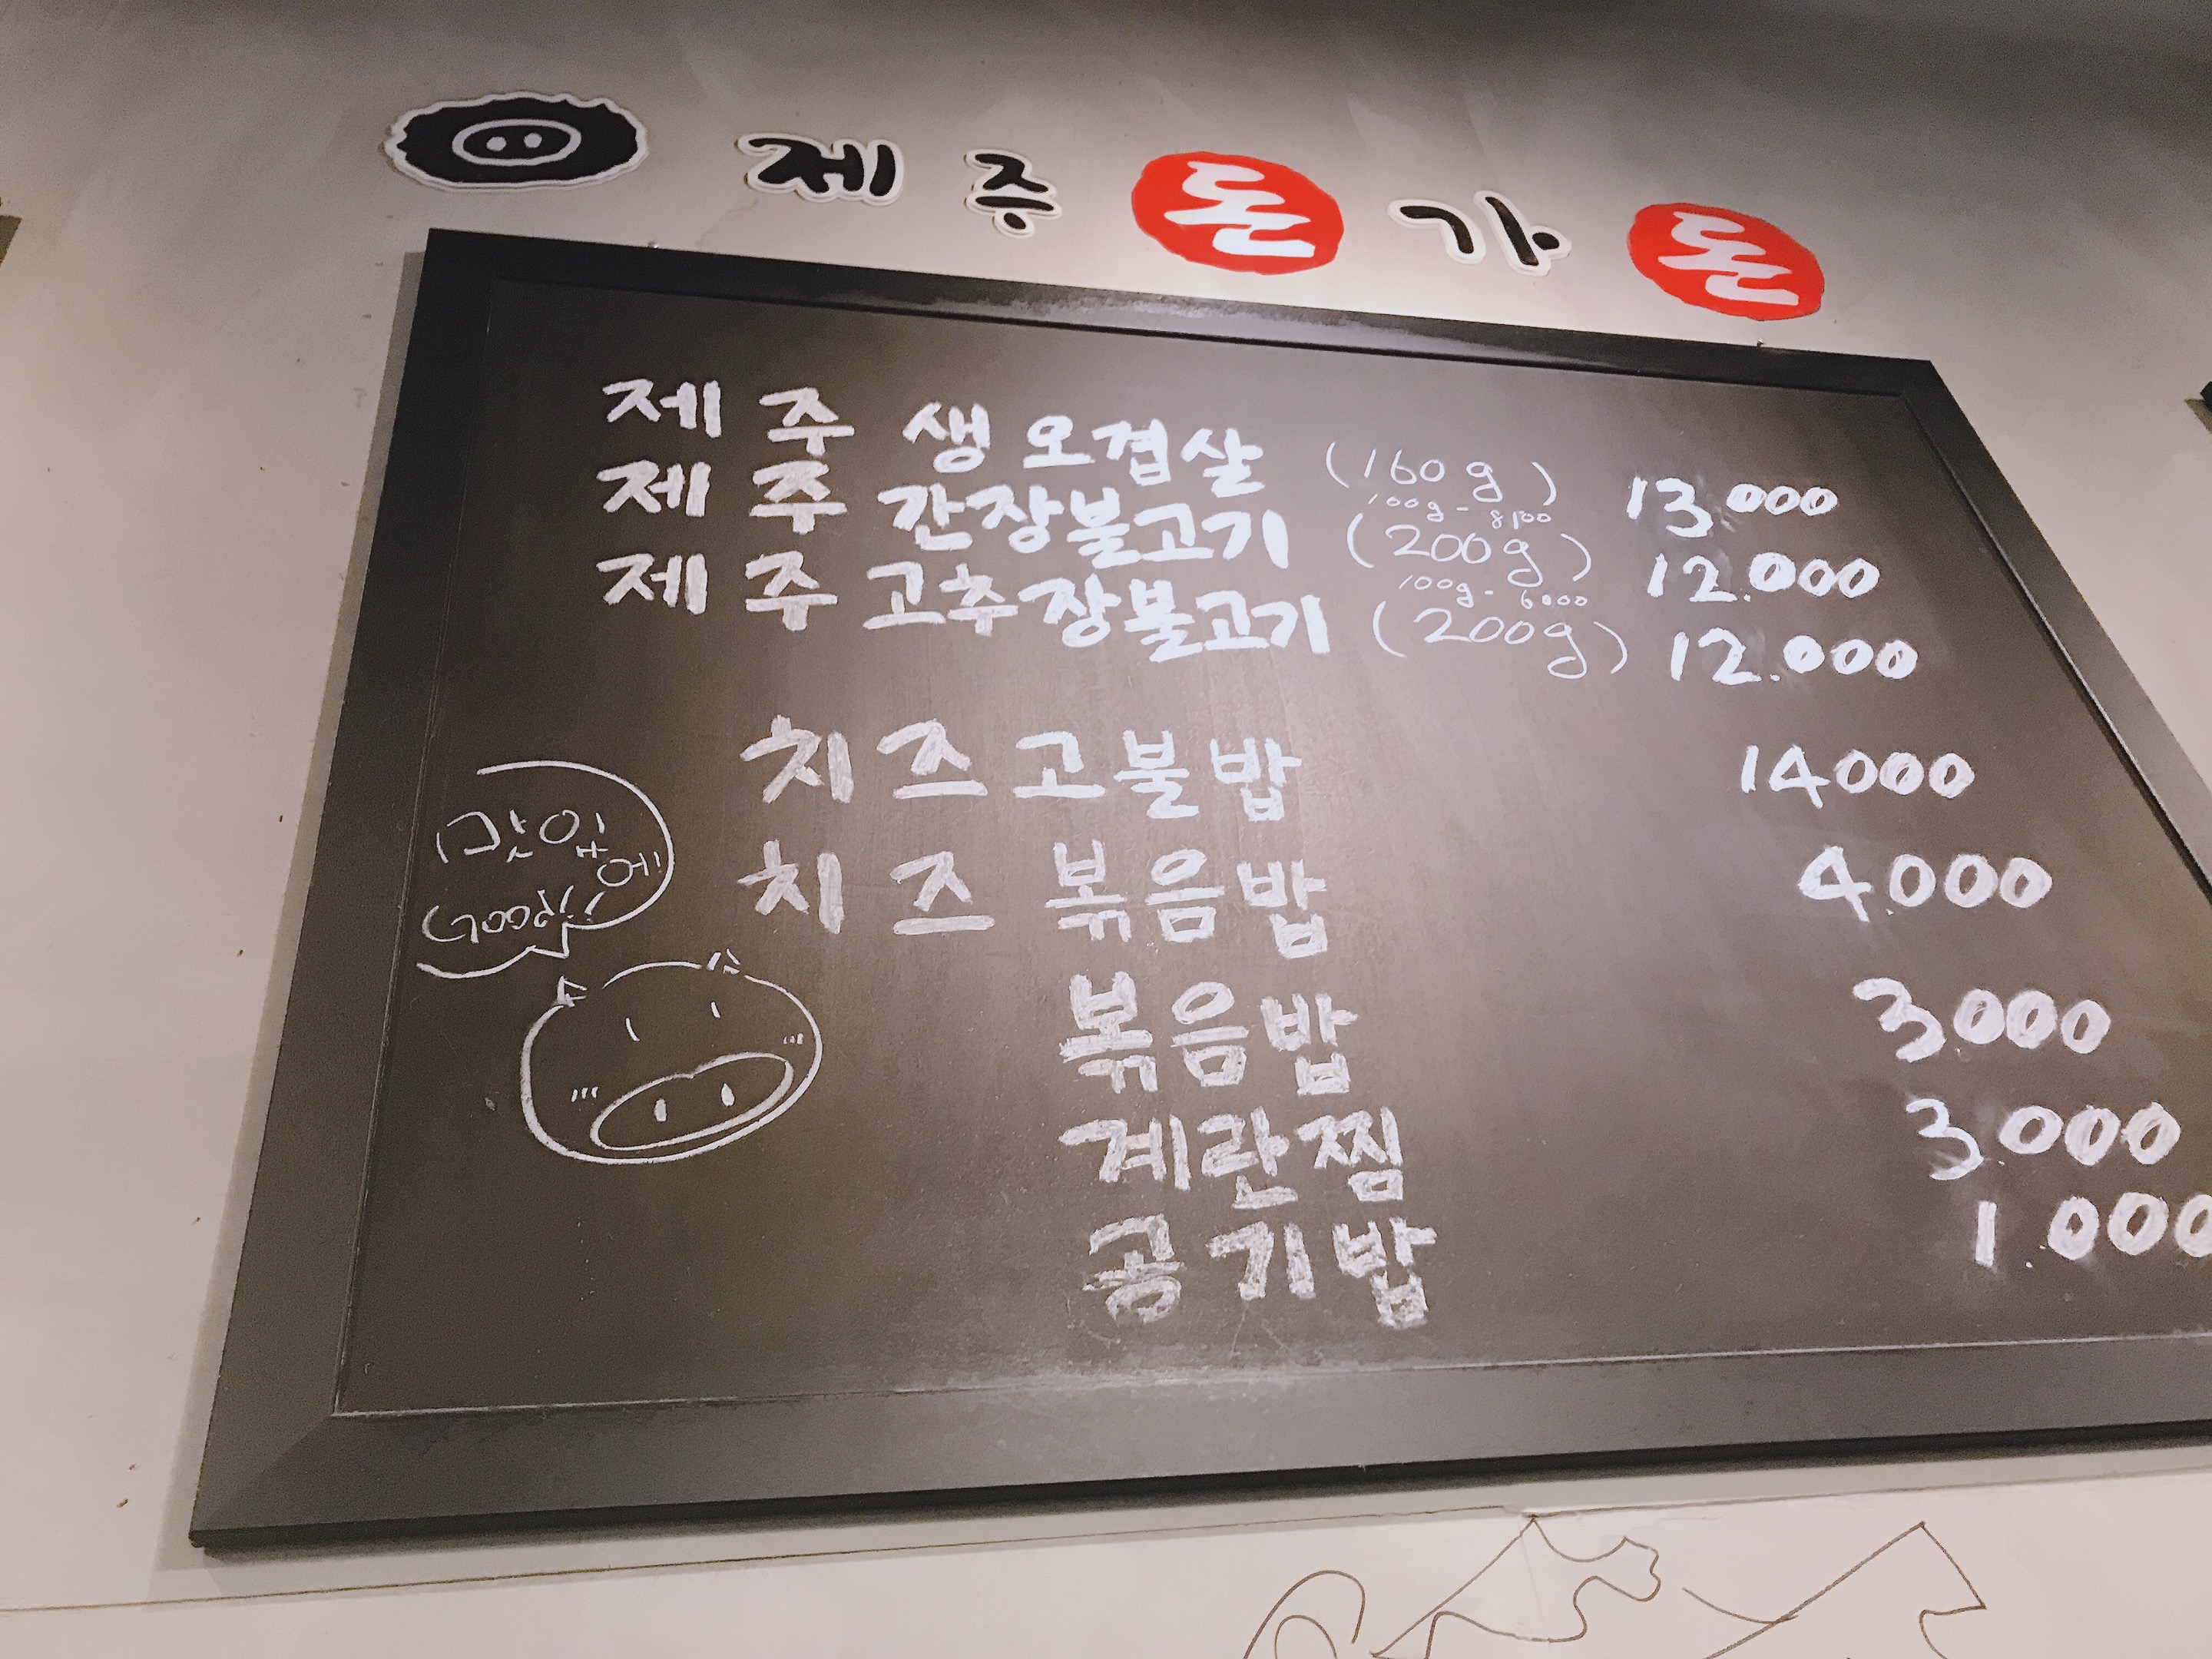 제주돈가돈
제주 생오겹살 (160g) 13.000
100g - 8100
제주 간장불고기 (200g) 12.000
100g - 6000
제주 고추장불고기 (200g) 12.000
치즈고불밥 14000
치즈 볶음밥 4.000
볶음밥 3000
계란찜 3.000
공기밥 1.000
맛있어
Good!!